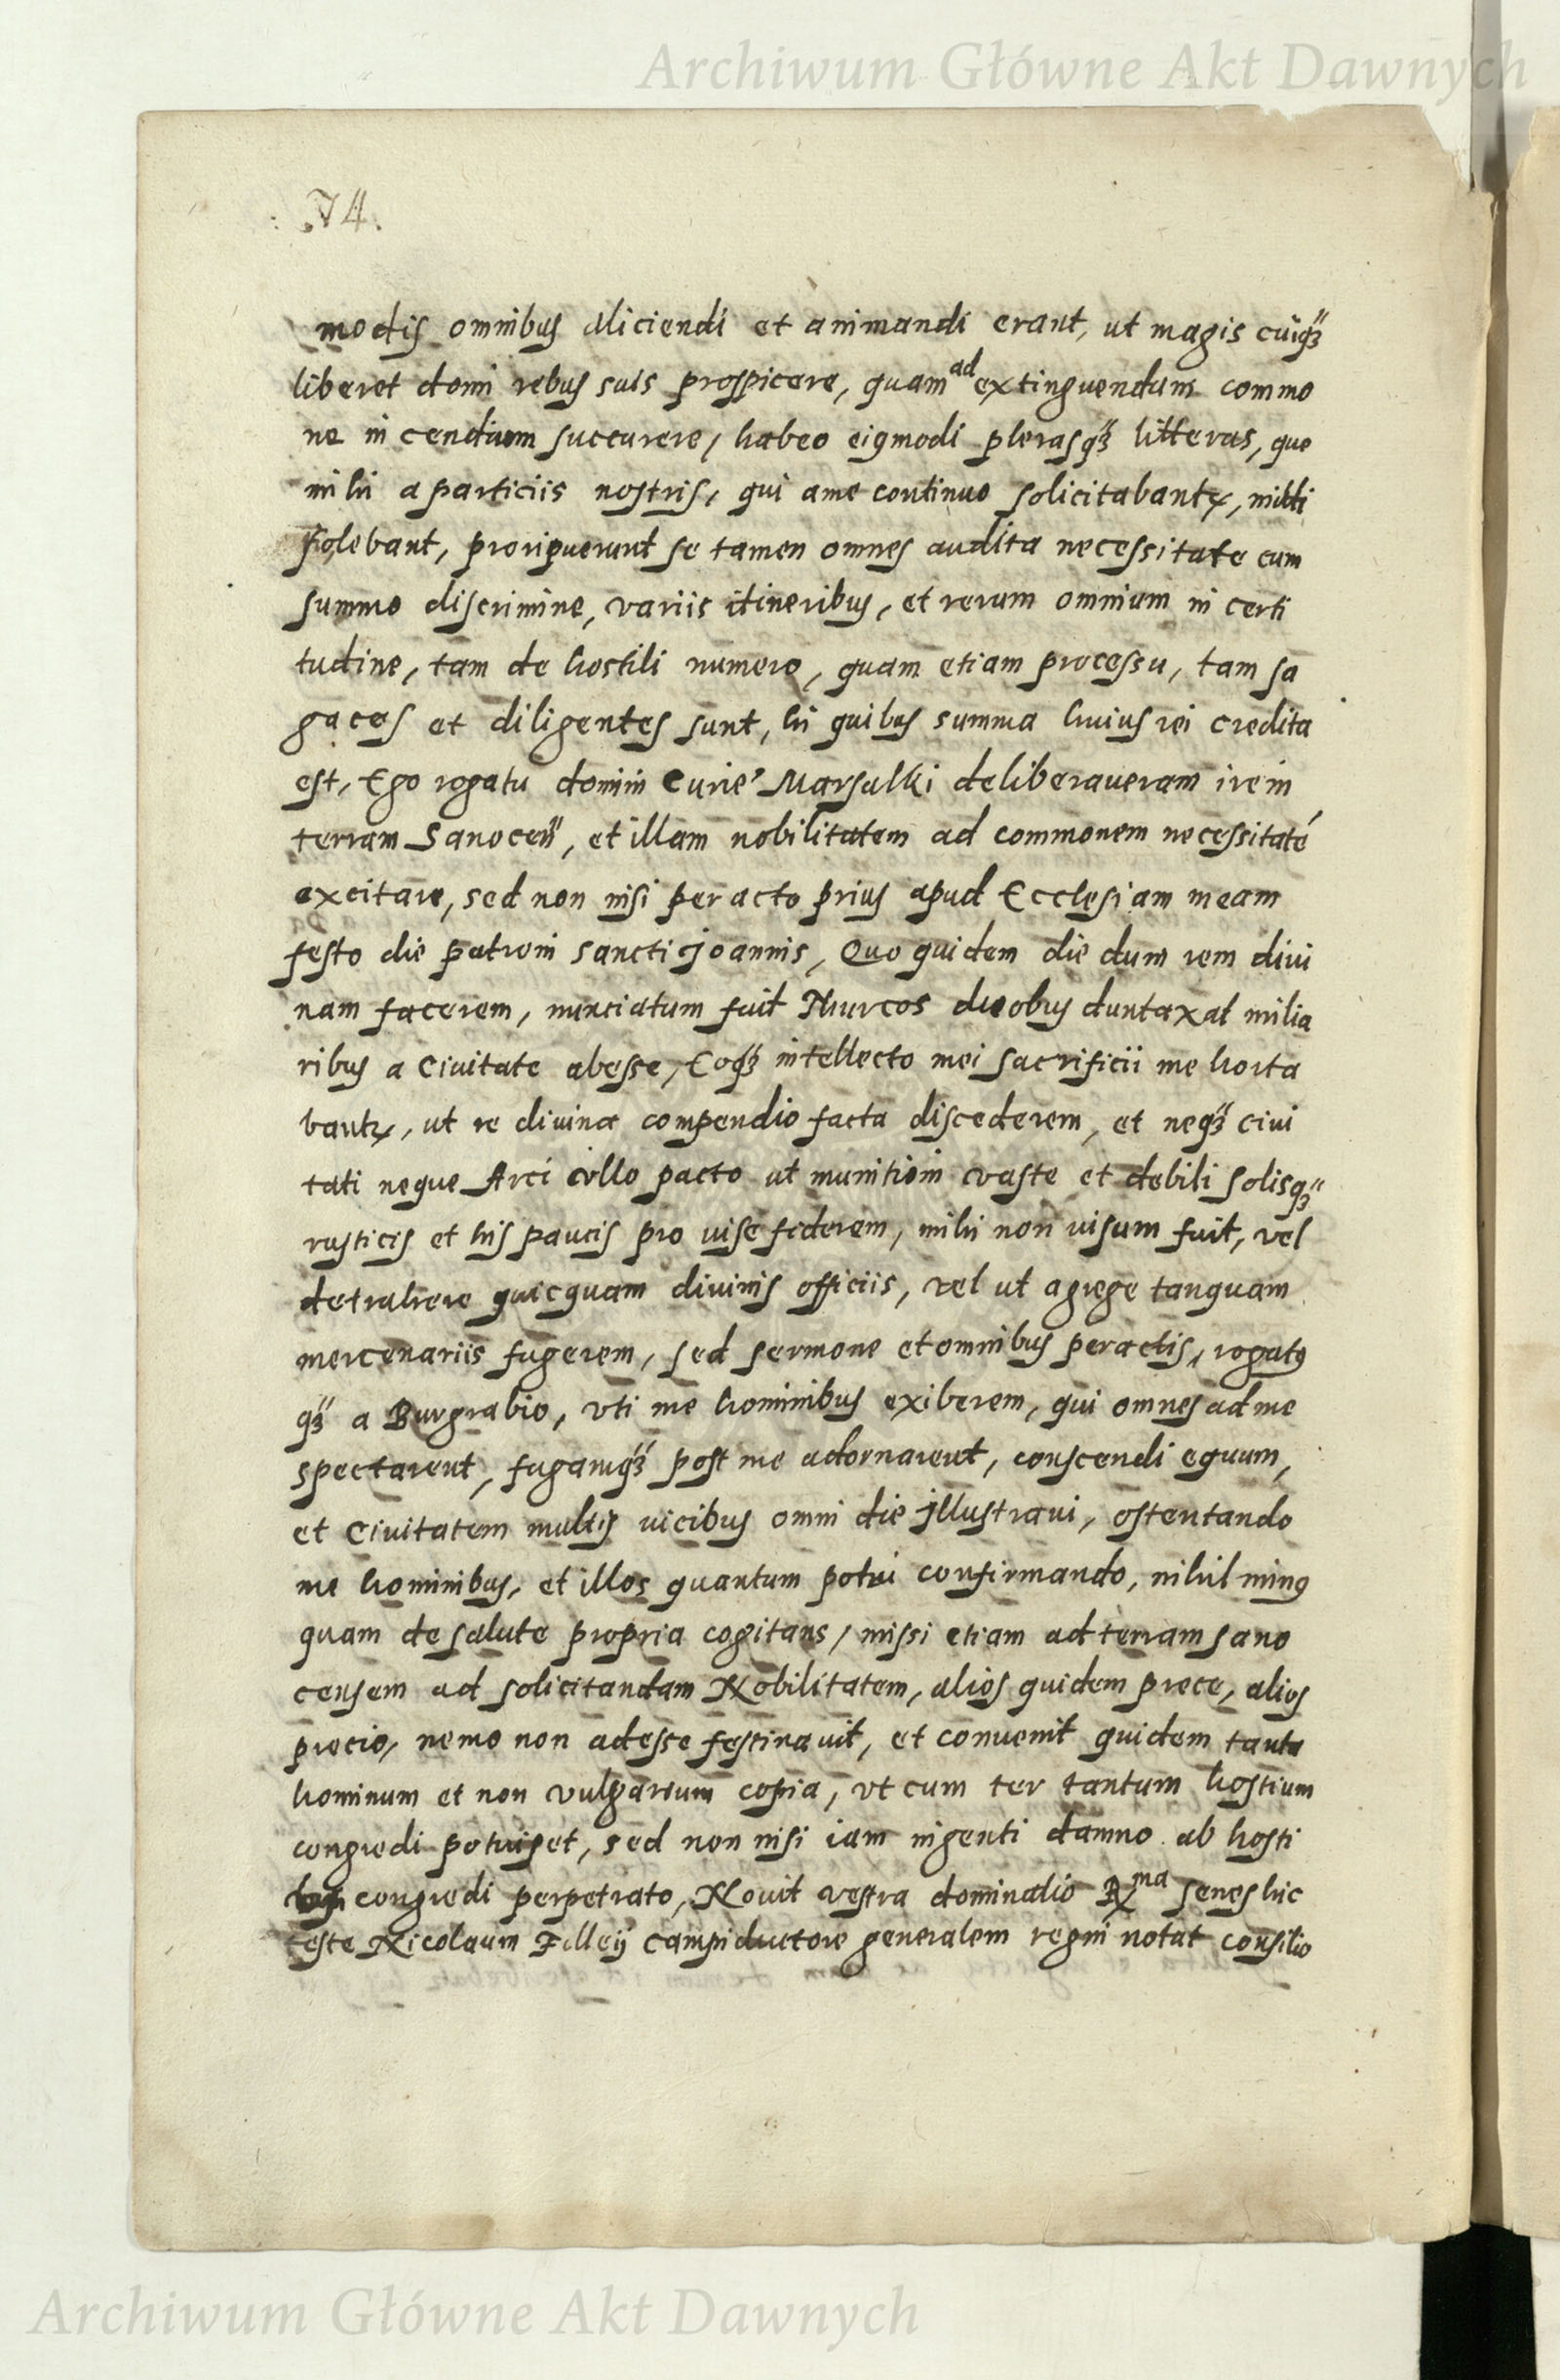 Archiwum Główne Akt Dawnych
74.
modis omnibus aliciendi et animandi erant, ut magis cuiqꝫ
liberet domi rebus suis prospicere, quam ad extinguendum commo
ne in cendium succurere, habeo eiꝯmodi plerasqꝫ litteras, que
mihi a particiis nostris, qui ame continuo solicitabantꝝ, mitti
solebant, proripuerunt se tamen omnes audita necessitate cum
summo discrimine, variis itineribus, et rerum omnium in certi
tudine, tam de hostili numero, quam etiam processu, tam sa
gaces et diligentes sunt, hi quibus summa huius rei credita
est, Ego rogatu domini Curie Marsalki deliberaueram ire in
terram Sanoceñ, et illam nobilitatem ad commonem necessitaté
excitare, sed non nisi per acto prius apud Ecclesiam meam
festo die patroni sancti joannis, Quo quidem die dum rem divi
nam facerem, nunciatum fuit Thurcos duobus duntaxat milia
ribus a Ciuitate abesse, Eoqꝫ intellecto mei sacrificii me horta
bantꝝ, ut re diuina compendio facta discederem, et neqꝫ ciui
tati neque Arci vllo pacto ut munitioni vaste et debili solisqꝫ
rusticis et his paucis pro uise fiderem, mihi non uisum fuit, vel
detrahere quicquam diuinis officiis, vel ut agrege tanquam
mercenariis fugerem, sed sermone et omnibus peractis, rogatꝯ
qꝫ a Burgrabio, vti me hominibus exiberem, qui omnes ad me
spectarent, fugamqꝫ post me adornarent, conscendi equum,
et Ciuitatem multis uicibus omni die jllustraui, ostentando
me hominibus, et illos quantum potui confirmando, nihil minꝯ
quam de salute propria cogitans, missi etiam ad terram sano
censem ad solicitandam Nobilitatem, alios quidem prece, alios
precio, nemo non adesse festinauit, et conuenit quidem tanta
hominum et non vulgarium copia, vt cum ter tantum hostium
congredi potuisset, sed non nisi iam ingenti damno ab hosti
bus congredi perpetrato, Nouit vestra dominatio Rma senes hic
teste Nicolaum campiductore generalem regni notat consilio
Archiwum Główne Akt Dawnych